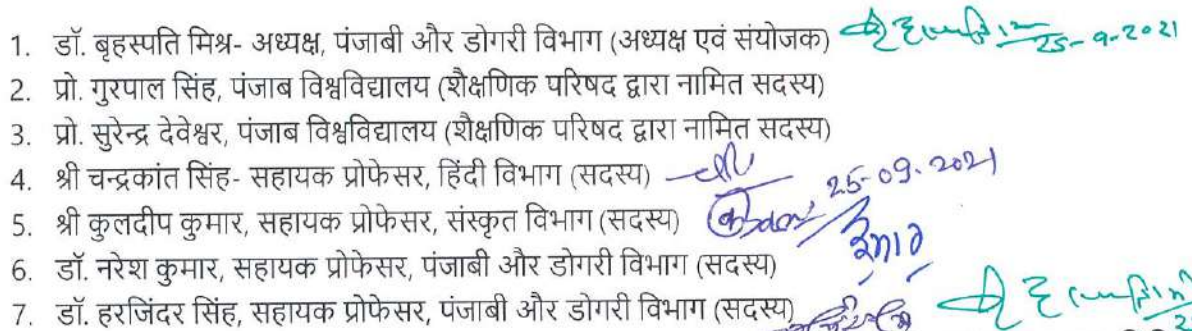 1. डॉ. बृहस्पति मिश्र- अध्यक्ष, पंजाबी और डोगरी विभाग (अध्यक्ष एवं संयोजक) 25-9-2021
2. प्रो. गुरपाल सिंह, पंजाब विश्वविद्यालय (शैक्षणिक परिषद द्वारा नामित सदस्य)
3. प्रो. सुरेन्द्र देवेश्वर, पंजाब विश्वविद्यालय (शैक्षणिक परिषद द्वारा नामित सदस्य)
4. श्री चन्द्रकांत सिंह- सहायक प्रोफेसर, हिंदी विभाग (सदस्य) 25-09-2021
5. श्री कुलदीप कुमार, सहायक प्रोफेसर, संस्कृत विभाग (सदस्य)
6. डॉ. नरेश कुमार, सहायक प्रोफेसर, पंजाबी और डोगरी विभाग (सदस्य)
7. डॉ. हरजिंदर सिंह, सहायक प्रोफेसर, पंजाबी और डोगरी विभाग (सदस्य)